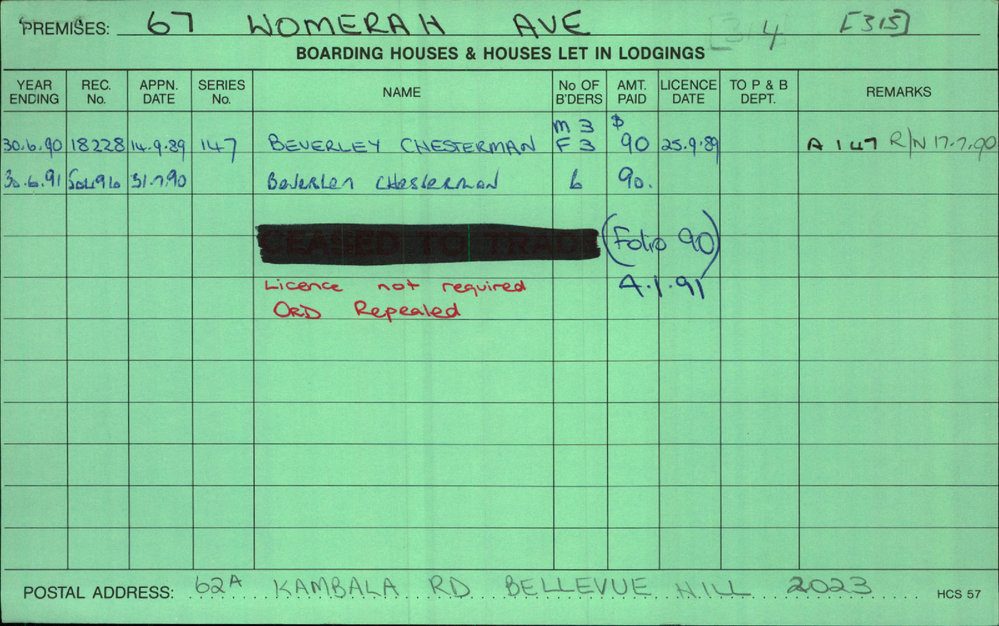 PREMISES: 67 WOMERAH AVE 4 [315]
BOARDING HOUSES & HOUSES LET IN LODGINGS
YEAR ENDING REC. No. APPN. DATE SERIES No. NAME No OF B'DERS AMT. PAID LICENCE DATE TO P & B DEPT. REMARKS
M 3 $
30.6.90 18228 14.9.89 147 BEVERLEY CHESTERMAN F 3 90 25.9.89 A 147 R/N 17.7.90
30.6.91 31.7.90 Beverley Chesterman 6 90.
CEASED TO TRADE (Folio 90)
Licence not required 4.1.91
ORD Repealed
POSTAL ADDRESS: 62A KAMBALA RD BELLEVUE HILL 2023 HCS 57